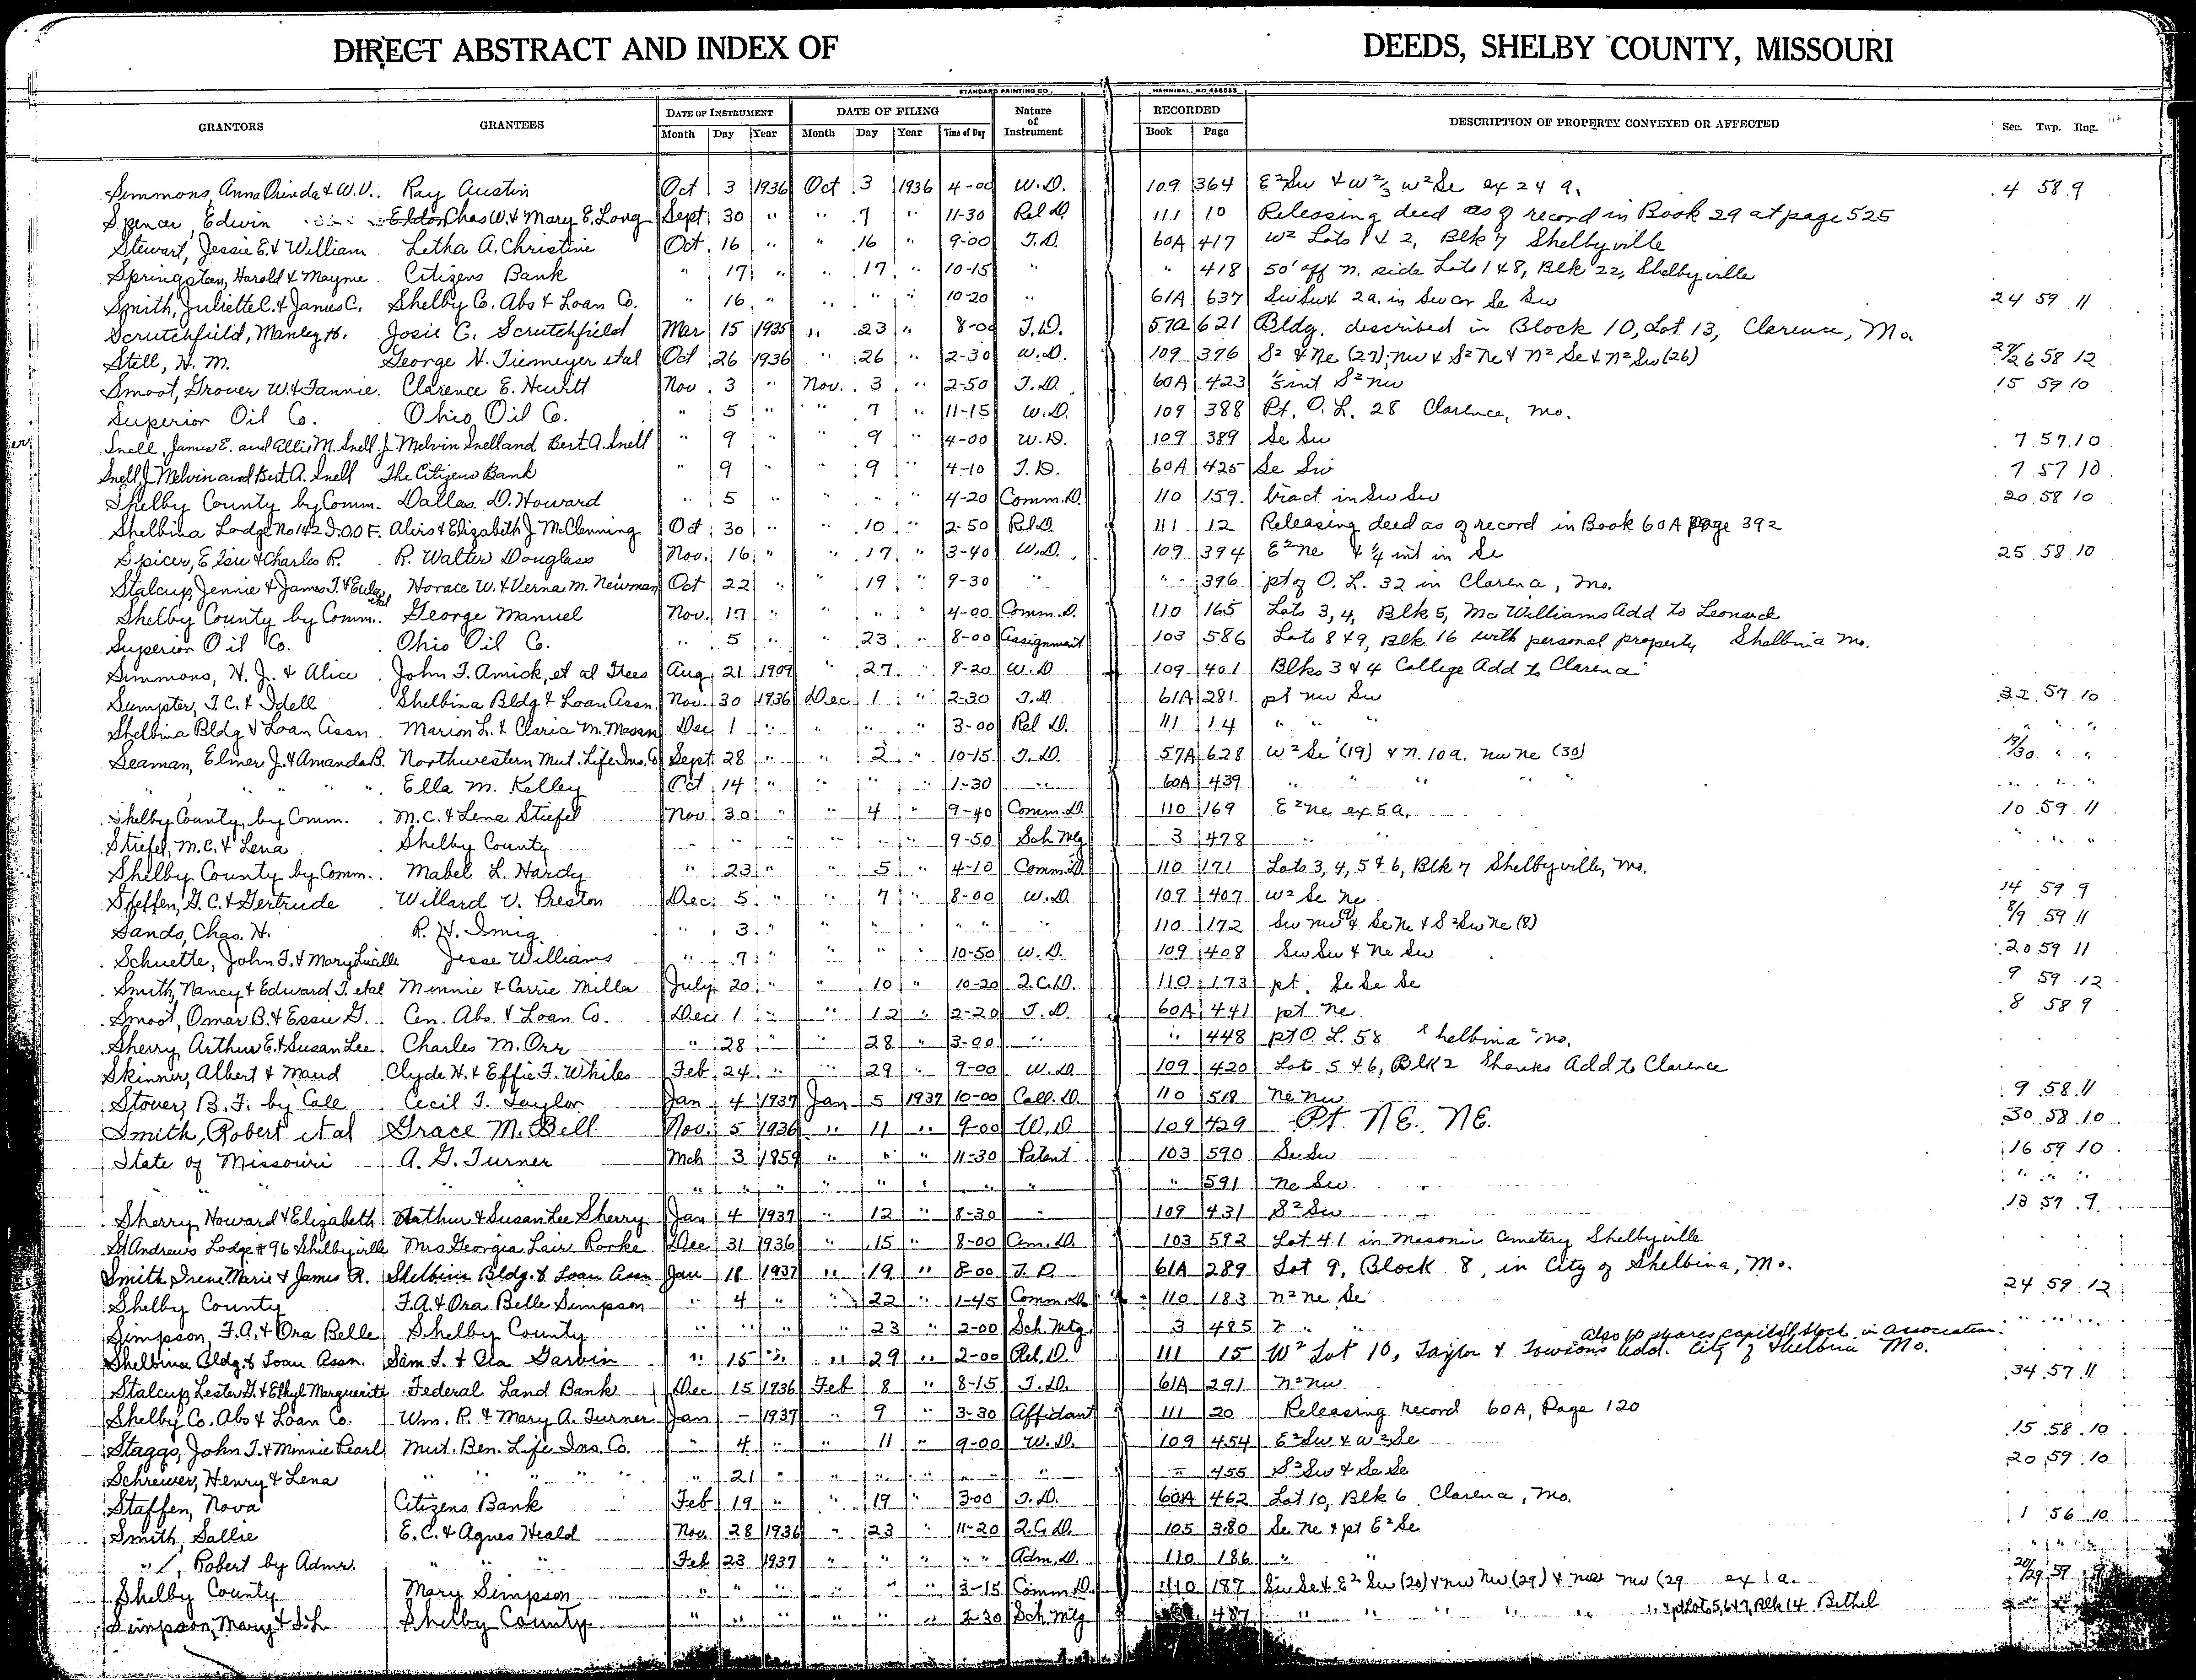 DIRECT ABSTRACT AND INDEX OF DEEDS, SHELBY COUNTY, MISSOURI
STANDARD PRINTING CO., HANNIBAL, MO
GRANTORS GRANTEES DATE OF INSTRUMENT DATE OF FILING Nature of Instrument RECORDED DESCRIPTION OF PROPERTY CONVEYED OR AFFECTED Sec. Twp. Rng.
Month Day Year Month Day Year Time of Day Book Page
Simmons, Anna & W.V. Ray Austin Oct 3 1936 Oct 3 1936 4-00 W.D. 109 364 E² Sw & W⅔ W² Se ex 24 a. 4 58 9
Spencer, Edwin Chas W. & Mary E. Long Sept. 30 " " 7 " 11-30 Rel D. 111 10 Releasing deed as of record in Book 29 at page 525
Stewart, Jessie E. & William Letha A. Christine Oct. 16 " " 16 " 9-00 T.D. 60A 417 W² Lots 1 & 2, Blk 7 Shelbyville
Springsteen, Harold & Mayme Citizens Bank " 17 " " 17 " 10-15 " " 418 50' off N. side Lots 1 & 8, Blk 22, Shelbyville
Smith, Juliette C. & James C. Shelby Co. Abs & Loan Co. " 16 " " " " 10-20 " 61A 637 Sw Sw & 2a. in Sw cor Se Sw 24 59 11
Scrutchfield, Manley H. Josie C. Scrutchfield Mar 15 1935 " 23 " 8-00 T.D. 57a 621 Bldg. described in Block 10, Lot 13, Clarence, Mo.
Stell, H. M. George H. Tiemeyer etal Oct 26 1936 " 26 " 2-30 W.D. 109 376 S² & Ne (27); Nw & S² Ne & N² Se & N² Sw (26) 27/26 58 12
Smoot, Grover W. & Fannie Clarence E. Hewitt Nov. 3 " Nov. 3 " 2-50 T.D. 60A 423 1/5 int S² Nw 15 59 10
Superior Oil Co. Ohio Oil Co. " 5 " " 7 " 11-15 W.D. 109 388 Pt. O. L. 28 Clarence, Mo.
Snell, James E. and Allie M. Snell J. Melvin Snell and Bert A. Snell " 9 " " 9 " 4-00 W.D. 109 389 Se Sw 7 57 10
Snell, J. Melvin and Bert A. Snell The Citizens Bank " 9 " " 9 " 4-10 T.D. 60A 425 Se Sw 7 57 10
Shelby County by Comm. Dallas D. Howard " 5 " " " " 4-20 Comm. D. 110 159 tract in Sw Sw 20 58 10
Shelbina Lodge No 142 I.O.O.F. & Elizabeth J. McClenning Oct 30 " " 10 " 2-50 Rel D. 111 12 Releasing deed as of record in Book 60A page 392
Spicer, Elsie & Charles R. R. Walter Douglass Nov. 16 " " 17 " 3-40 W.D. 109 394 E² Ne & ¼ int in Se 25 58 10
Stalcup, Jennie & James T. & etal Horace W. & Verna M. Newman Oct 22 " " 19 " 9-30 " " 396 pt of O. L. 32 in Clarence, Mo.
Shelby County by Comm. George Manuel Nov. 17 " " " " 4-00 Comm. D. 110 165 Lots 3, 4, Blk 5, McWilliams Add to Leonard
Superior Oil Co. Ohio Oil Co. " 5 " " 23 " 8-00 Assignment 103 586 Lots 8 & 9, Blk 16 with personal property Shelbina Mo.
Simmons, H. J. & Alice John T. Amick, et al Trees Aug 21 1909 " 27 " 8-20 W.D 109 401 Blks 3 & 4 College Add to Clarence
Sumpter, T.C. & Idell Shelbina Bldg & Loan Assn. Nov. 30 1936 Dec 1 " 2-30 T.D 61A 281 pt Nw Sw 32 57 10
Shelbina Bldg & Loan Assn. Marion L. & Clarice M. Mason Dec 1 " " " " 3-00 Rel D. 111 14 " " " " " "
Seaman, Elmer J. & Amanda B. Northwestern Mut. Life Ins. Co Sept. 28 " " 2 " 10-15 T.D. 57A 628 W² Se (19) & N. 10a. Nw Ne (30) 19/30 " "
" " " " Ella M. Kelley Oct 14 " " " " 1-30 " 60A 439 " " " " " " " "
Shelby County, by Comm. M.C. & Lena Stiefel Nov 30 " " 4 " 9-40 Comm. D. 110 169 E² Ne ex 5a. 10 59 11
Striefel, M.C. & Lena Shelby County " " " " " " 9-50 Sch Mtg 3 478 " " " " "
Shelby County by Comm. Mabel L. Hardy " 23 " " 5 " 4-10 Comm. D. 110 171 Lots 3, 4, 5 & 6, Blk 7 Shelbyville, Mo.
Steffen, G. C. & Gertrude Willard V. Preston Dec 5 " " 7 " 8-00 W.D. 109 407 W² Se Ne 14 59 9
Sands, Chas. H. R. H. Imig " 3 " " " " " " 110 172 Sw Nw (9) & Se Ne & S² Sw Ne (8) 8/9 59 11
Schuette, John F. & Mary Lucille Jesse Williams " 7 " " " " 10-50 W.D. 109 408 Sw Sw & Ne Sw 20 59 11
Smith, Nancy & Edward T. etal Minnie & Carrie Miller July 20 " " 10 " 10-20 Q.C.D. 110 173 pt. Se Se Se 9 59 12
Smoot, Omar B. & Essie G. Cen. Abs. & Loan Co. Dec 1 " " 12 " 2-20 T.D. 60A 441 pt Ne 8 58 9
Sherry, Arthur E. & Susan Lee Charles M. Orr " 28 " " 28 " 3-00 " " 448 pt O. L. 58 Shelbina Mo.
Skinner, Albert & Maud Clyde H. & Effie F. Whiles Feb 24 " " 29 " 9-00 W.D. 109 420 Lot 5 & 6, Blk 2 Shanks Add to Clarence
Stover, B. F. by Coll Cecil T. Taylor Jan 4 1937 Jan 5 1937 10-00 Coll. D. 110 519 Ne Nw 9 58 11
Smith, Robert et al Grace M. Bell Nov. 5 1936 " 11 " 9-00 W.D 109 429 Pt. NE. NE. 30 58 10
State of Missouri A. G. Turner Mch 3 1859 " " " 11-30 Patent 103 590 Se Sw 16 59 10
" " " " " " " " " " " " " " 591 Ne Sw " " "
Sherry, Howard & Elizabeth Arthur & Susan Lee Sherry Jan 4 1937 " 12 " 8-30 " 109 431 S² Sw 13 57 9
St Andrews Lodge #96 Shelbyville Mrs Georgia Lair Rorke Dec 31 1936 " 15 " 8-00 Cem. D. 103 592 Lot 41 in Masonic Cemetery Shelbyville
Smith Irene Marie & James R. Shelbina Bldg. & Loan Assn Jan 18 1937 " 19 " 8-00 T.D. 61A 289 Lot 9, Block 8, in City of Shelbina, Mo.
Shelby County F.A. & Ora Belle Simpson " 4 " " 22 " 1-45 Comm. D. 110 183 N² Ne Se 24 59 12
Simpson, F.A. & Ora Belle Shelby County " " " " 23 " 2-00 Sch. Mtg. 3 485 " " " " " "
also 10 shares capital stock in association.
Shelbina Bldg. & Loan Assn. Sam L. & Ola Garvin " 15 " " 29 " 2-00 Rel. D. 111 15 W² Lot 10, Taylor & Towsons Add. City of Shelbina Mo.
Stalcup, Lester G. & Ethyl Marguerite Federal Land Bank Dec 15 1936 Feb 8 " 8-15 T.D. 61A 291 N² Nw 34 57 11
Shelby Co. Abs & Loan Co. Wm. R. & Mary A. Turner Jan - 1937 " 9 " 3-30 Affidavit 111 20 Releasing record 60A, Page 120
Staggs, John T. & Minnie Pearl Mut. Ben. Life Ins. Co. " 4 " " 11 " 9-00 W.D. 109 454 E² Sw & W² Se 15 58 10
Schreiver, Henry & Lena " " " " " 21 " " " " " " " 455 S² Sw & Se Se 20 59 10
Staffen, Nova Citizens Bank Feb 19 " " 19 " 3-00 T.D. 60A 462 Lot 10, Blk 6 Clarence, Mo.
Smith, Sallie E. C. & Agnes Heald Nov. 28 1936 " 23 " 11-20 Q.C.D. 105 380 Se Ne & pt E² Se 1 56 10
" , Robert by Admr. " " " Feb 23 1937 " " " " " Adm. D. 110 186 " " " " "
Shelby County Mary Simpson " " " " " " 3-15 Comm D. 110 187 Sw Se & E² Sw (20) & Nw Nw (29) & Nw (29 ex 1 a. 20/29 59 9
Simpson, Mary & S.L. Shelby County " " " " " " 3-30 Sch. Mtg 487 " " " " & pt Lots 5, 6 & 7, Blk 14 Bethel